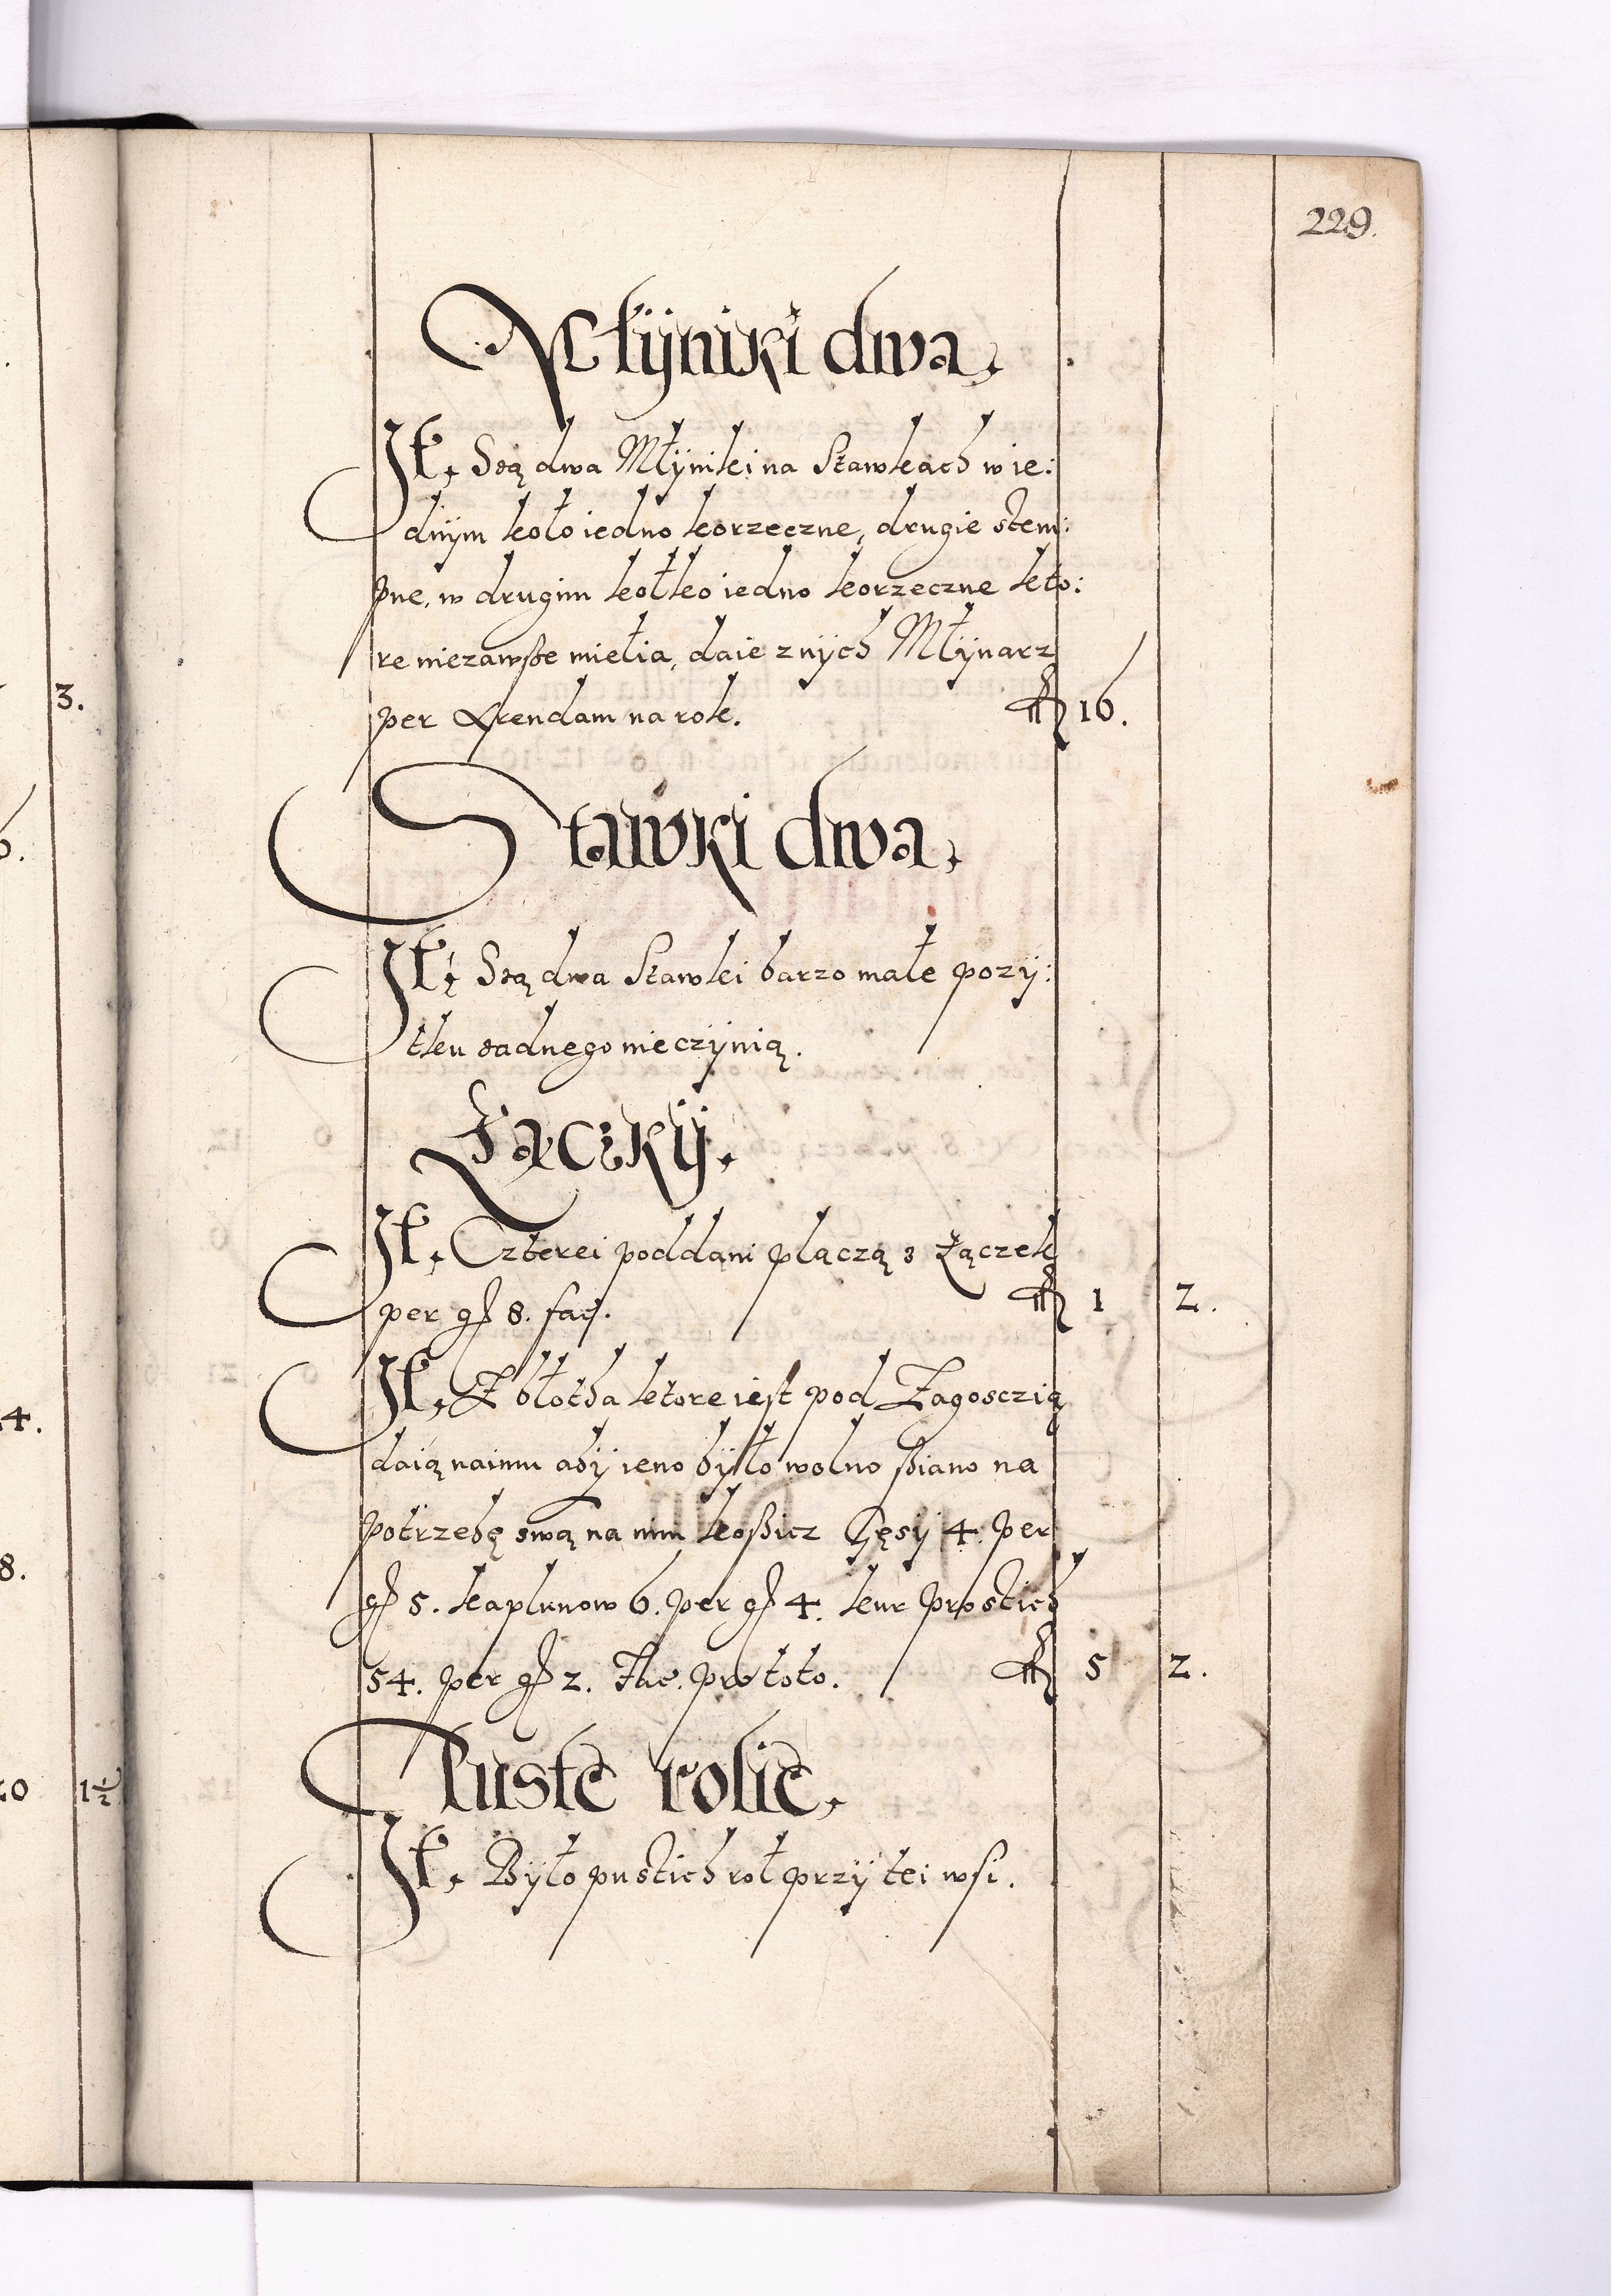 229.
Młÿniki dwa,
It, Są dwa Młÿniki na Stawkach w ie:
dnÿm koło iedno korzeczne, drugie stem:
pne, w drugim kołko iedno korzeczne kto:
re niezawsze mielia, daie znÿch Młÿnarz
per Arendam na rok. 16.
Stawki dwa,
It, Są dwa Stawki barzo małe pozÿ:
tku żadnego nieczÿnią.
Łączkÿ.
It, Czterei poddani płaczą z Łączek
per gß 8. fac. 1 2.
It, Z błotha ktore iest pod Zagosczią
daią naimu abÿ ieno bÿło wolno sßiano na
potrzebę swą na nim koßicz Gęsÿ 4. per
gß 5. kapłunow 6. per gß 4. kur prostich
54. per gß 2. Fac. pro toto. 5 2.
Puste rolie,
It, Bÿło pustich rol przÿ tei wsi.
3.
6.
4.
8.
1½